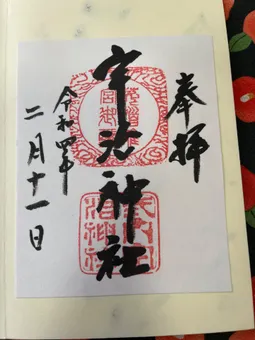 奉拝
宇治神社
令和四年
二月十一日